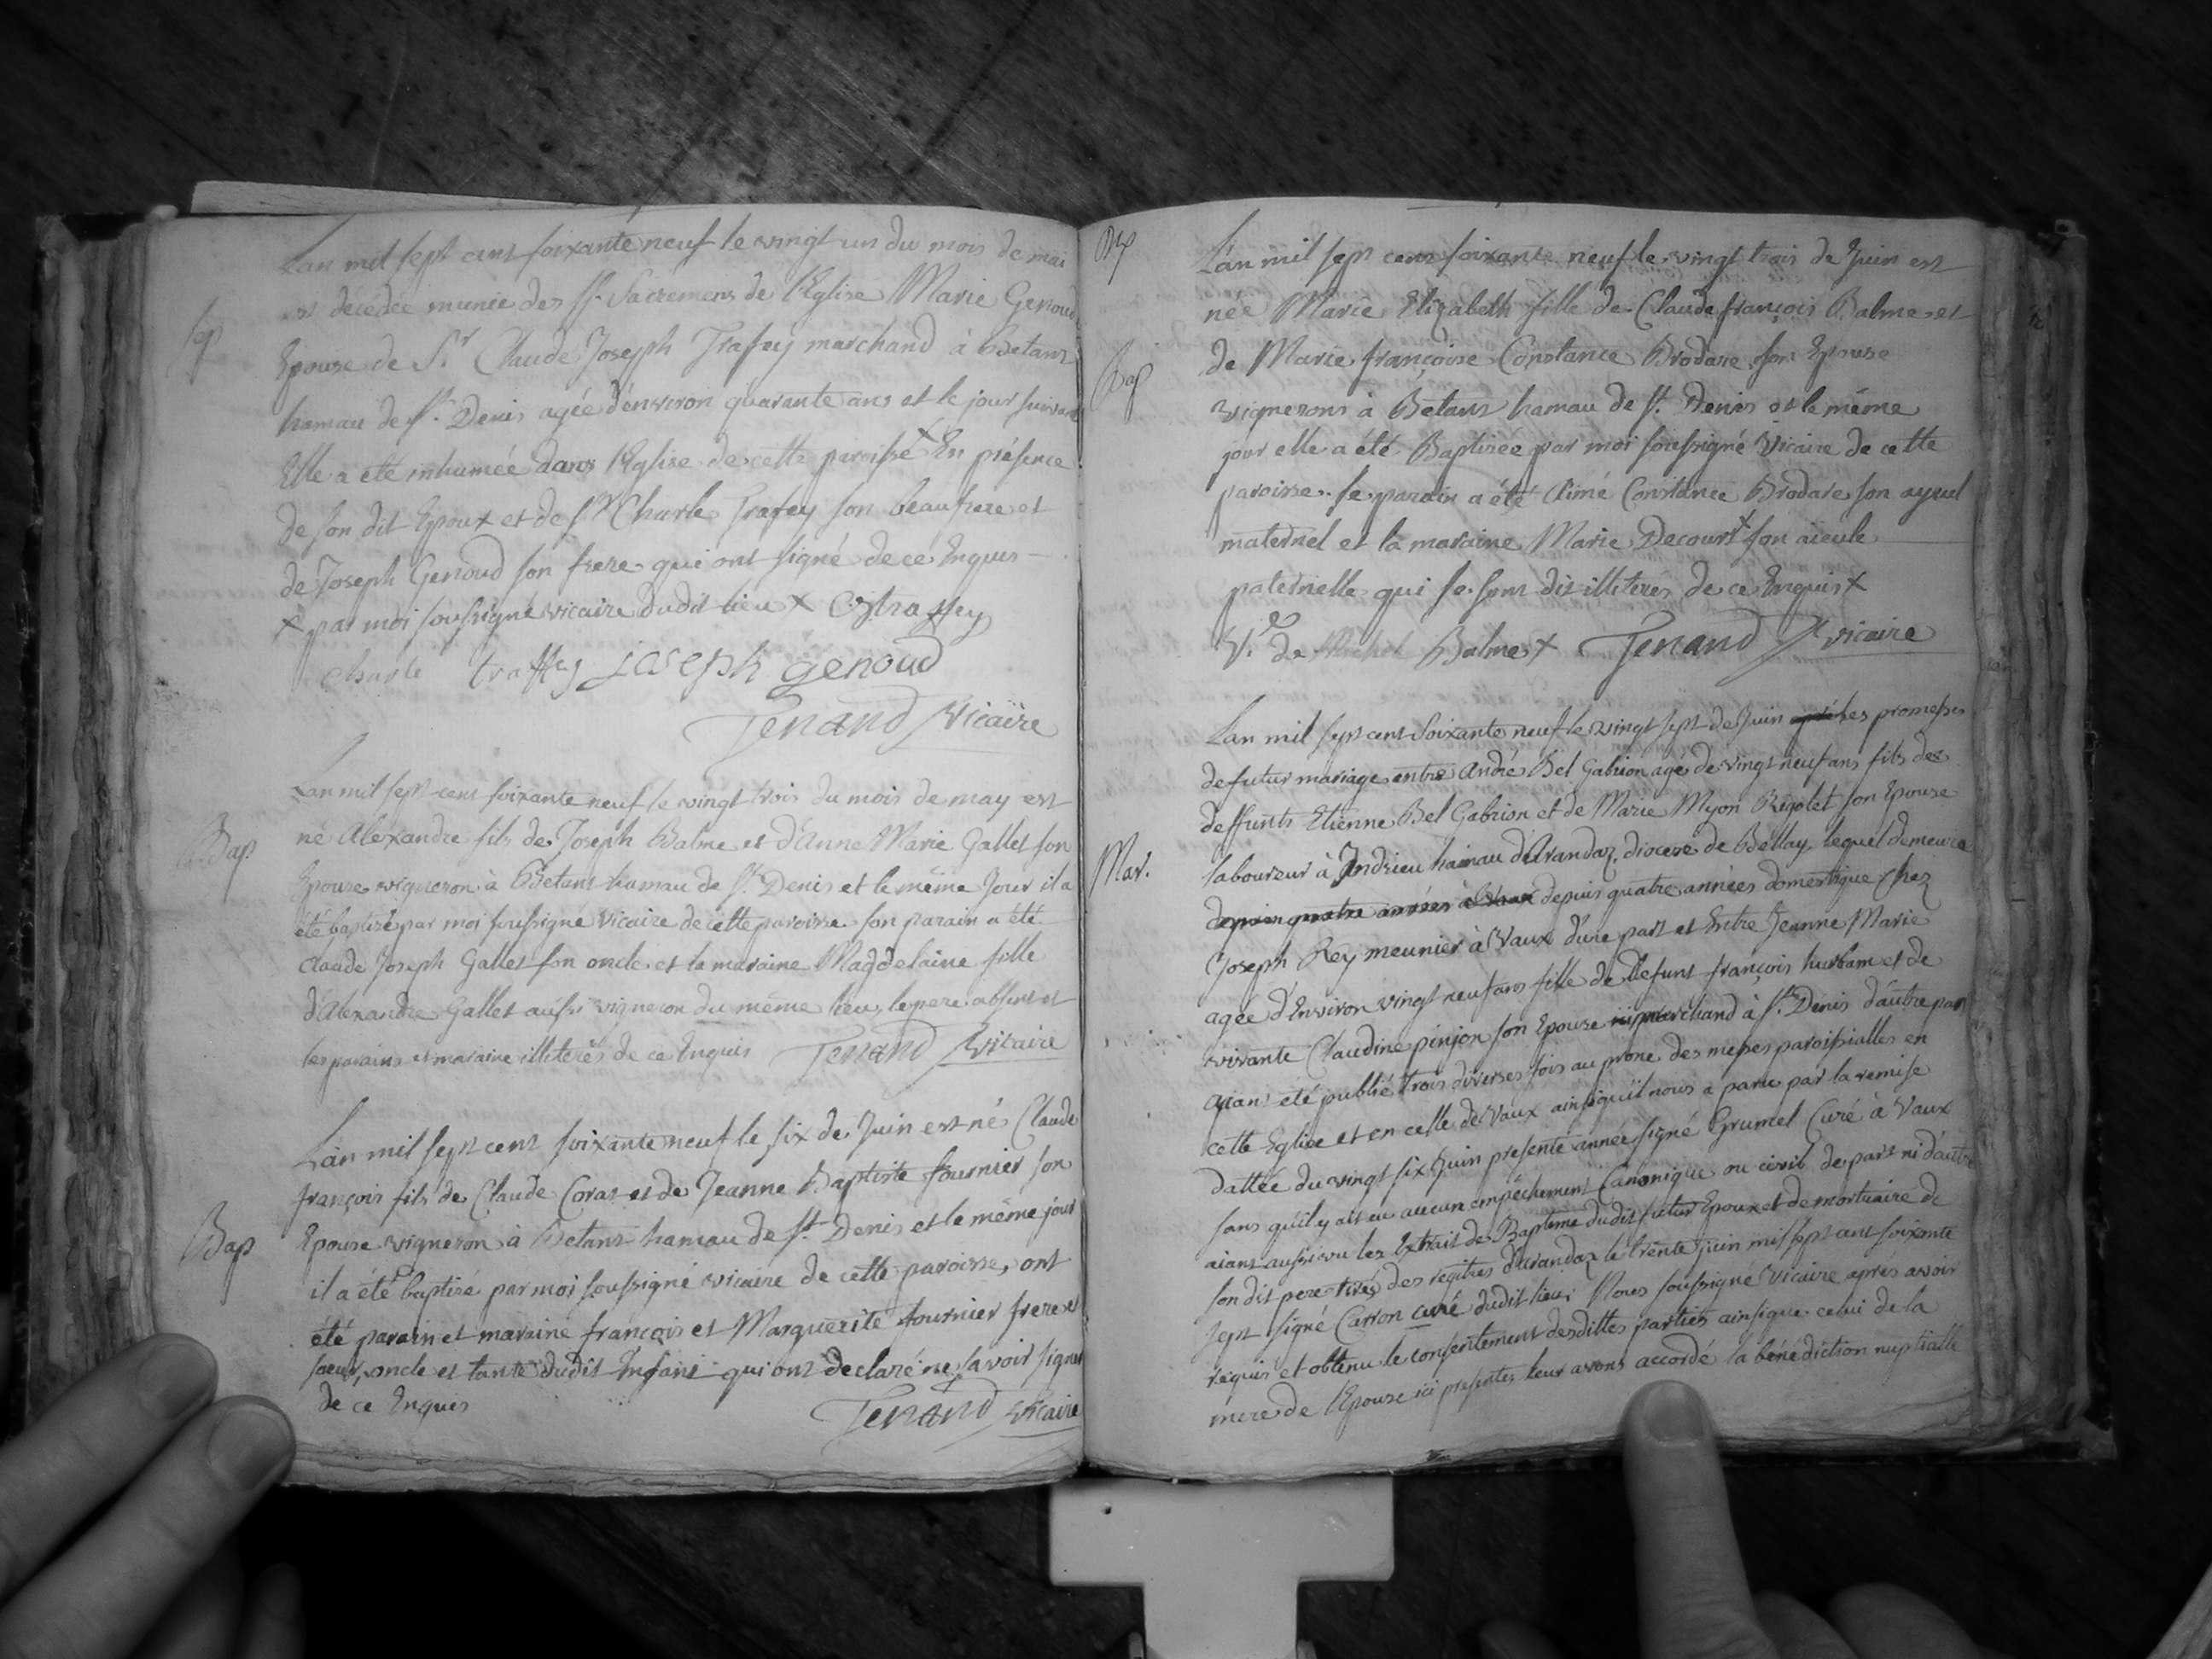 Lan mil sept cent soixante neuf le vingt un du mois de mai
est décédée munie des Sts. Sacremens de l'Eglise Marie Genoud
Sep
Epouse de Sr. Claude Joseph Trafey marchand à Betans
hamau de St. Denis agée d'environ quarante ans et le jour suivant
Elle a été inhumée dans l'Eglise de cette paroisse x En présence
de son dit Epoux et de Sr Charle Trafey son beaufrere et
de Joseph Genoud son frere qui ont signé de ce Enquis
x par moi soussigné vicaire dudit lieu x C j traffey
charle traffey joseph genoud
Tenand Vicaire
Lan mil sept cent soixante neuf le vingt trois du mois de may est
Bap
né Alexandre fils de Joseph Balme et d'Anne Marie Gallet son
Epouse vigneron à Betans hamau de St. Denis et le même Jour il a
été baptisé par moi soussigné Vicaire de cette paroisse. son parain a été
Claude Joseph Gallet son oncle et la maraine Magdelaine fille
d'Alexandre Gallet aussi vigneron du même lieu, le pere absent et
les parains et maraine illiterés de ce Enquis Tenand Vicaire
Lan mil sept cent soixante neuf le six de Juin est né Claude
françois fils de Claude Coras et de Jeanne Baptiste fournier son
Bap
Epouse vigneron à Betans hamau de St. Denis et le même jour
il a été baptisé par moi soussigné vicaire de cette paroisse, ont
été parain et maraine françois et Marguerite fournier frere et
soeur, oncle et tante dudit Enfant qui ont declaré ne savoir signer
de ce Enquis Tenand Vicaire
Lan mil sept cent soixante neuf le vingt trois de Juin est
née Marie Elizabeth fille de Claude françois Balme et
Bap
de Marie françoise Constance Brodare son Epouse
vignerons à Betans hamau de St. Denis et le même
jour elle a été Baptisée par moi soussigné Vicaire de cette
paroisse. le parain a été Aimé Constance Brodare son ayeul
maternel et la maraine Marie Decourt x son aieule
paternelle qui se sont dit illiterés de ce Enquis x
Ve. de Michel Balme x Tenand Vicaire
Lan mil sept cent Soixante neuf le vingt sept de Juin les promesses
de futur mariage entre André Bel Gabrion agé de vingt neuf ans fils des
deffunts Etienne Bel Gabrion et de Marie Myon Rigolet son Epouse
Mar.
laboureur à Indrieu hamau d'Arandaz, diocese de Bellay, lequel demeure
depuis quatre années à Vaux depuis quatre années domestique chez
Joseph Rey meunier à Vaux d'une part et Entre Jeanne Marie
agée d'Environ vingt neuf ans fille de Defunt françois hurbam et de
vivante Claudine pinjon son Epouse marchand à St. Denis d'autre part
aiant été publié trois diverses fois au prone des messes paroissialles en
cette Eglise et en celle de Vaux ainsi qu'il nous a paru par la remise
dattée du vingt six Juin presente année signé Grumel Curé à Vaux
sans qu'il y ait eu aucun empêchement Canonique ou civil de part ni d'autre
aiant aussi vu les Extrait de Baptême dudit futur Epoux et de mortuaire de
son dit pere tirés des régitres d'arandaz le trente juin mil sept cent soixante
sept signé Carron curé dudit lieu. Nous soussigné Vicaire après avoir
requis et obtenu le consentement desdittes parties ainsi que celui de la
mere de l'Epouse ici presente, leur avons accordé la bénédiction nuptialle